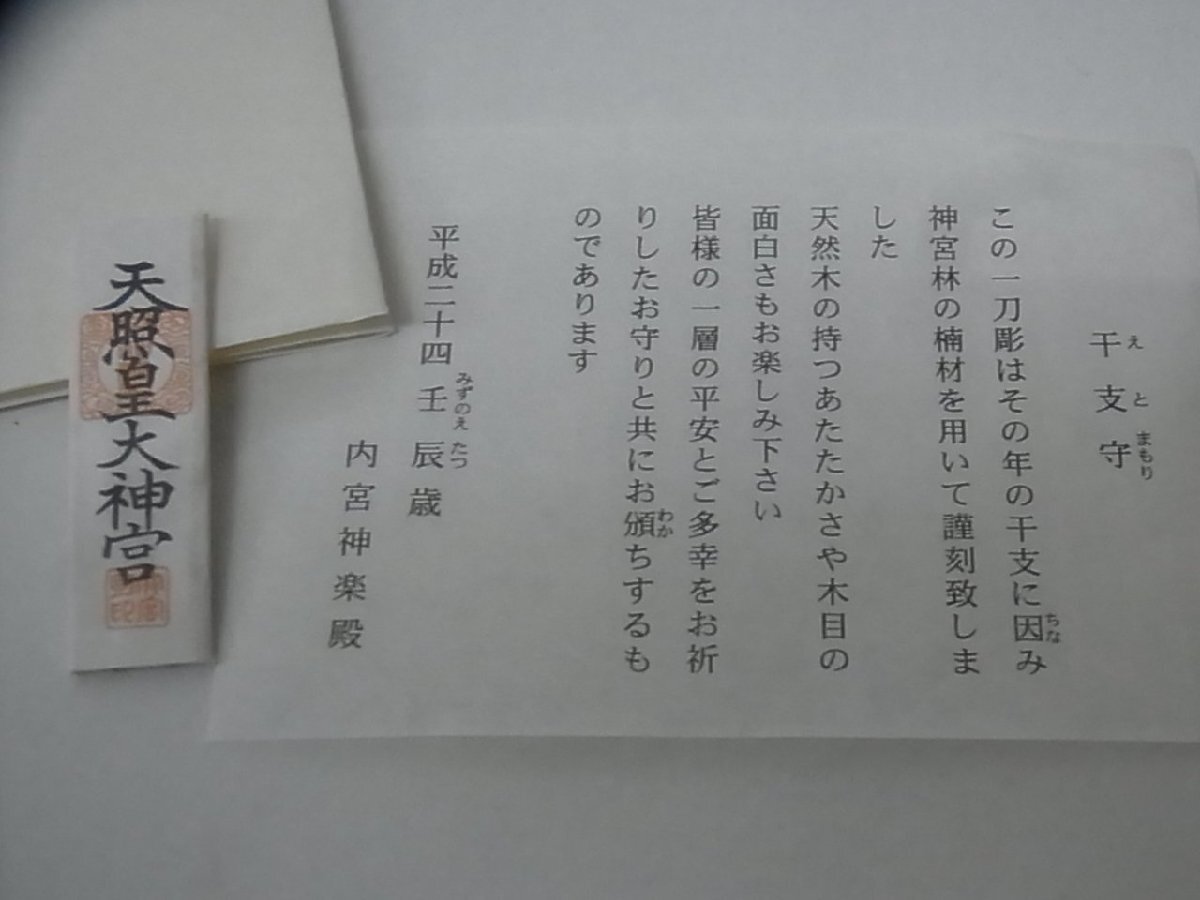 干支守
えとまもり
この一刀彫はその年の干支に因み
ちな
神宮林の楠材を用いて謹刻致しま
した
天然木の持つあたたかさや木目の
面白さもお楽しみ下さい
皆様の一層の平安とご多幸をお祈
りしたお守りと共にお頒ちするも
わか
のであります
平成二十四壬辰歳
みずのえたつ
内宮神楽殿
天照皇大神宮